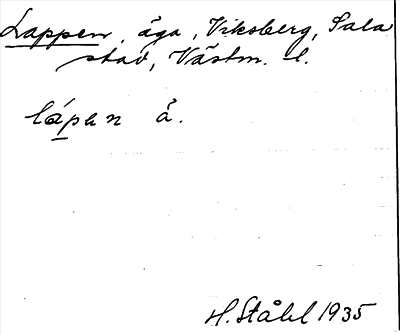 Lappen, äga, Viksberg, Sala
stad, Västm. l.
lápan å.
H. Ståhl 1935